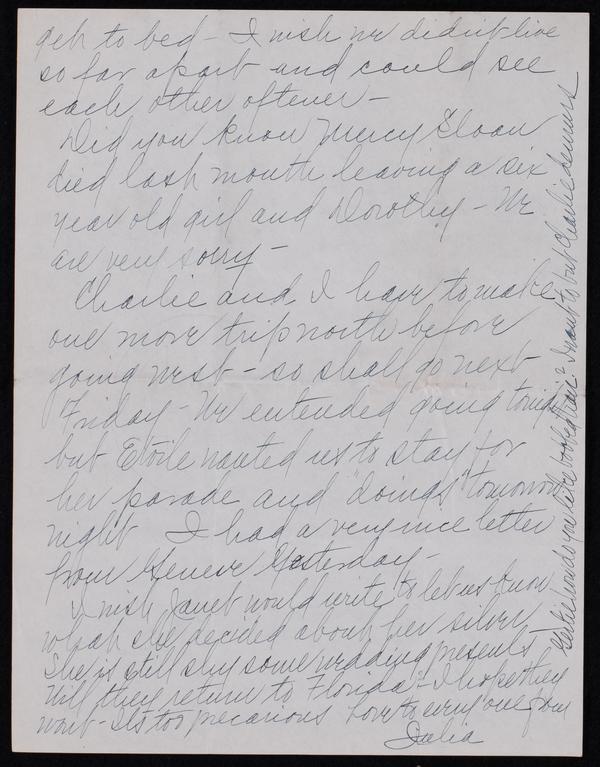 get to bed - I wish we didn't live
so far apart and could see
each other oftener -
Did you know Mercy Sloan
died last month leaving a six
year old girl and Dorothy - We
are very sorry -
Charlie and I have to make
one more trip north before
going west - so shall go next
Friday - We intended going tonight
but Etoile wanted us to stay for
her parade and "doings" tomorrow
night I had a very nice letter
from Geneve Yesterday -
I wish Janet would write to let us know
what she decided about her silver -
She is still shy some wedding presents -
Will they return to Florida? - I hope they
wont - Its too precarious Love to every one from
Julia
Gertie how do you like bobbed hair? I want to but Charlie demurs